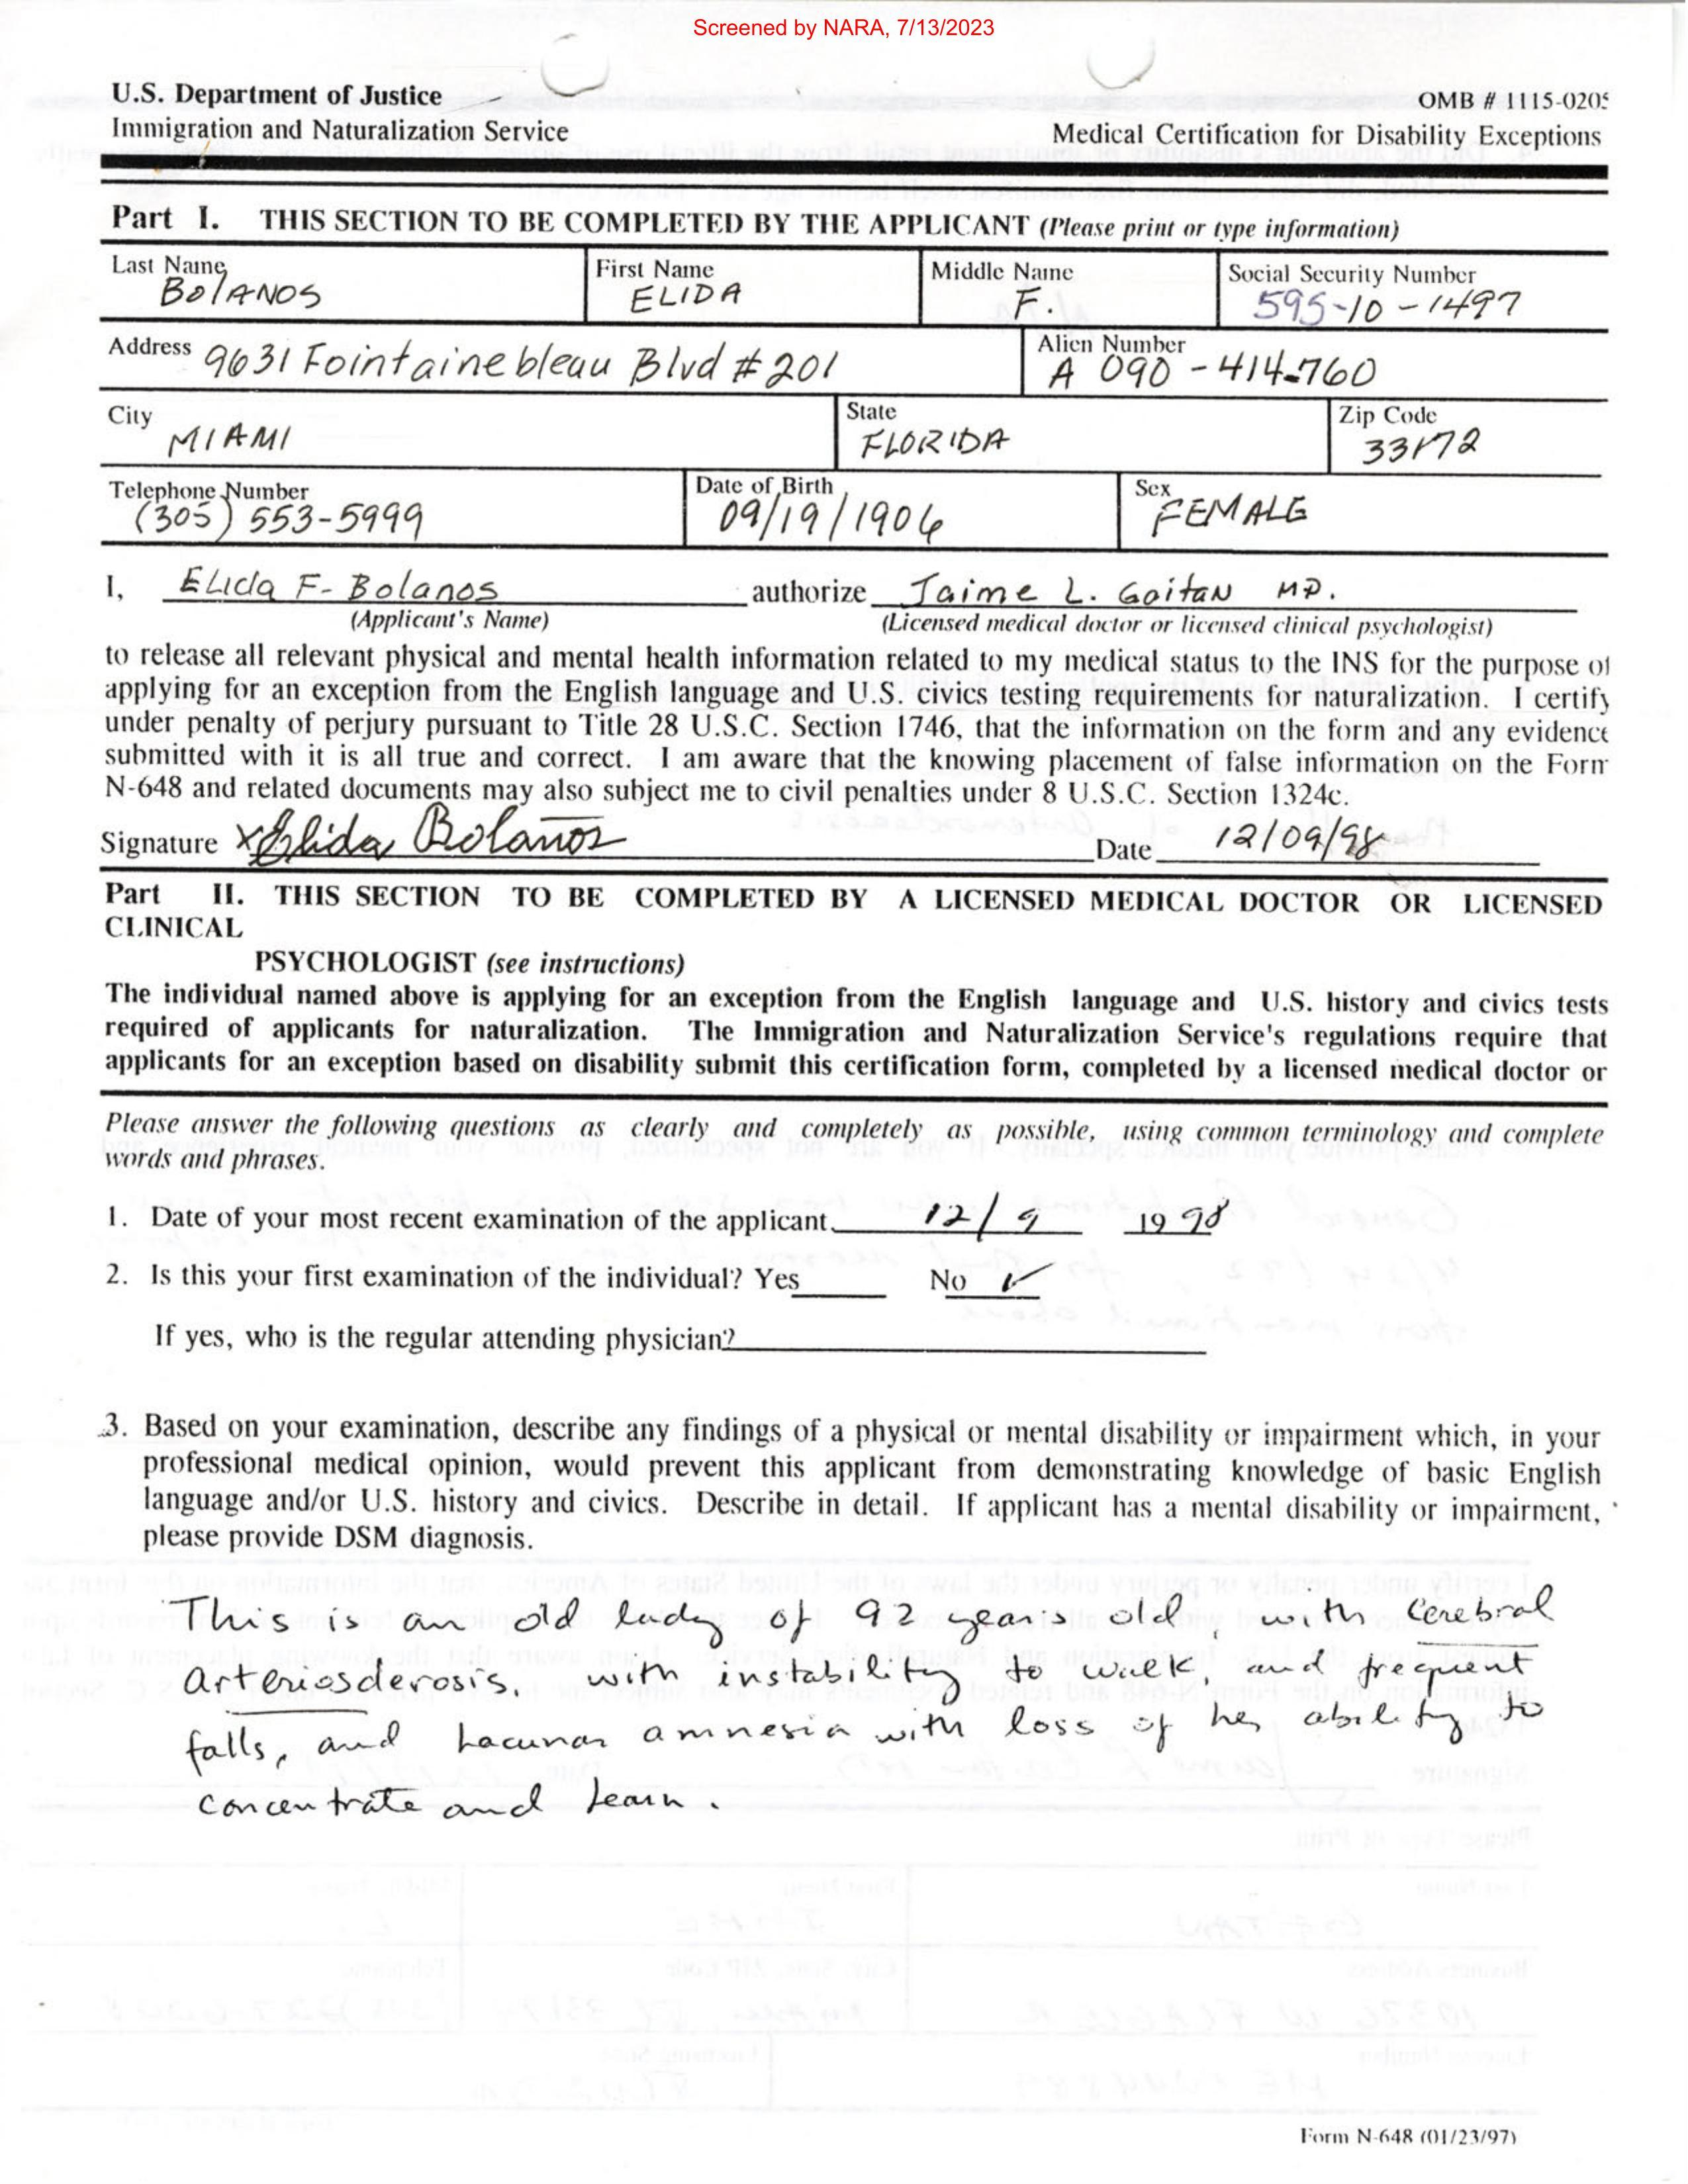 Screened by NARA, 7/13/2023
U.S. Department of Justice
OMB # 1115-0205
Immigration and Naturalization Service
Medical Certification for Disability Exceptions
Part I. THIS SECTION TO BE COMPLETED BY THE APPLICANT (Please print or type information)
Last Name First Name Middle Name Social Security Number
BOLANOS ELIDA F. 595-10-1497
Address 9631 Fointainebleau Blvd #201 Alien Number A 090-414-760
City State Zip Code
MIAMI FLORIDA 33172
Telephone Number Date of Birth Sex
(305) 553-5999 09/19/1906 FEMALE
I, Elida F- Bolanos authorize Jaime L. Gaitan MD.
(Applicant's Name) (Licensed medical doctor or licensed clinical psychologist)
to release all relevant physical and mental health information related to my medical status to the INS for the purpose of
applying for an exception from the English language and U.S. civics testing requirements for naturalization. I certify
under penalty of perjury pursuant to Title 28 U.S.C. Section 1746, that the information on the form and any evidence
submitted with it is all true and correct. I am aware that the knowing placement of false information on the Form
N-648 and related documents may also subject me to civil penalties under 8 U.S.C. Section 1324c.
Signature x Elida Bolaños Date 12/09/98
Part II. THIS SECTION TO BE COMPLETED BY A LICENSED MEDICAL DOCTOR OR LICENSED
CLINICAL
PSYCHOLOGIST (see instructions)
The individual named above is applying for an exception from the English language and U.S. history and civics tests
required of applicants for naturalization. The Immigration and Naturalization Service's regulations require that
applicants for an exception based on disability submit this certification form, completed by a licensed medical doctor or
Please answer the following questions as clearly and completely as possible, using common terminology and complete
words and phrases.
1. Date of your most recent examination of the applicant. 12/9 1998
2. Is this your first examination of the individual? Yes No ✓
If yes, who is the regular attending physician?
3. Based on your examination, describe any findings of a physical or mental disability or impairment which, in your
professional medical opinion, would prevent this applicant from demonstrating knowledge of basic English
language and/or U.S. history and civics. Describe in detail. If applicant has a mental disability or impairment,
please provide DSM diagnosis.
This is an old lady of 92 years old, with Cerebral
arteriosclerosis, with instability to walk, and frequent
falls, and Lacunar amnesia with loss of her ability to
concentrate and learn.
Form N-648 (01/23/97)